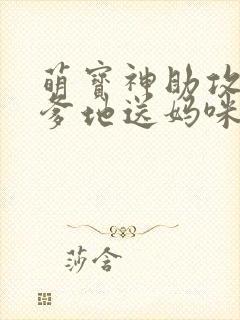 萌宝神助攻
爹地送妈咪
莎含